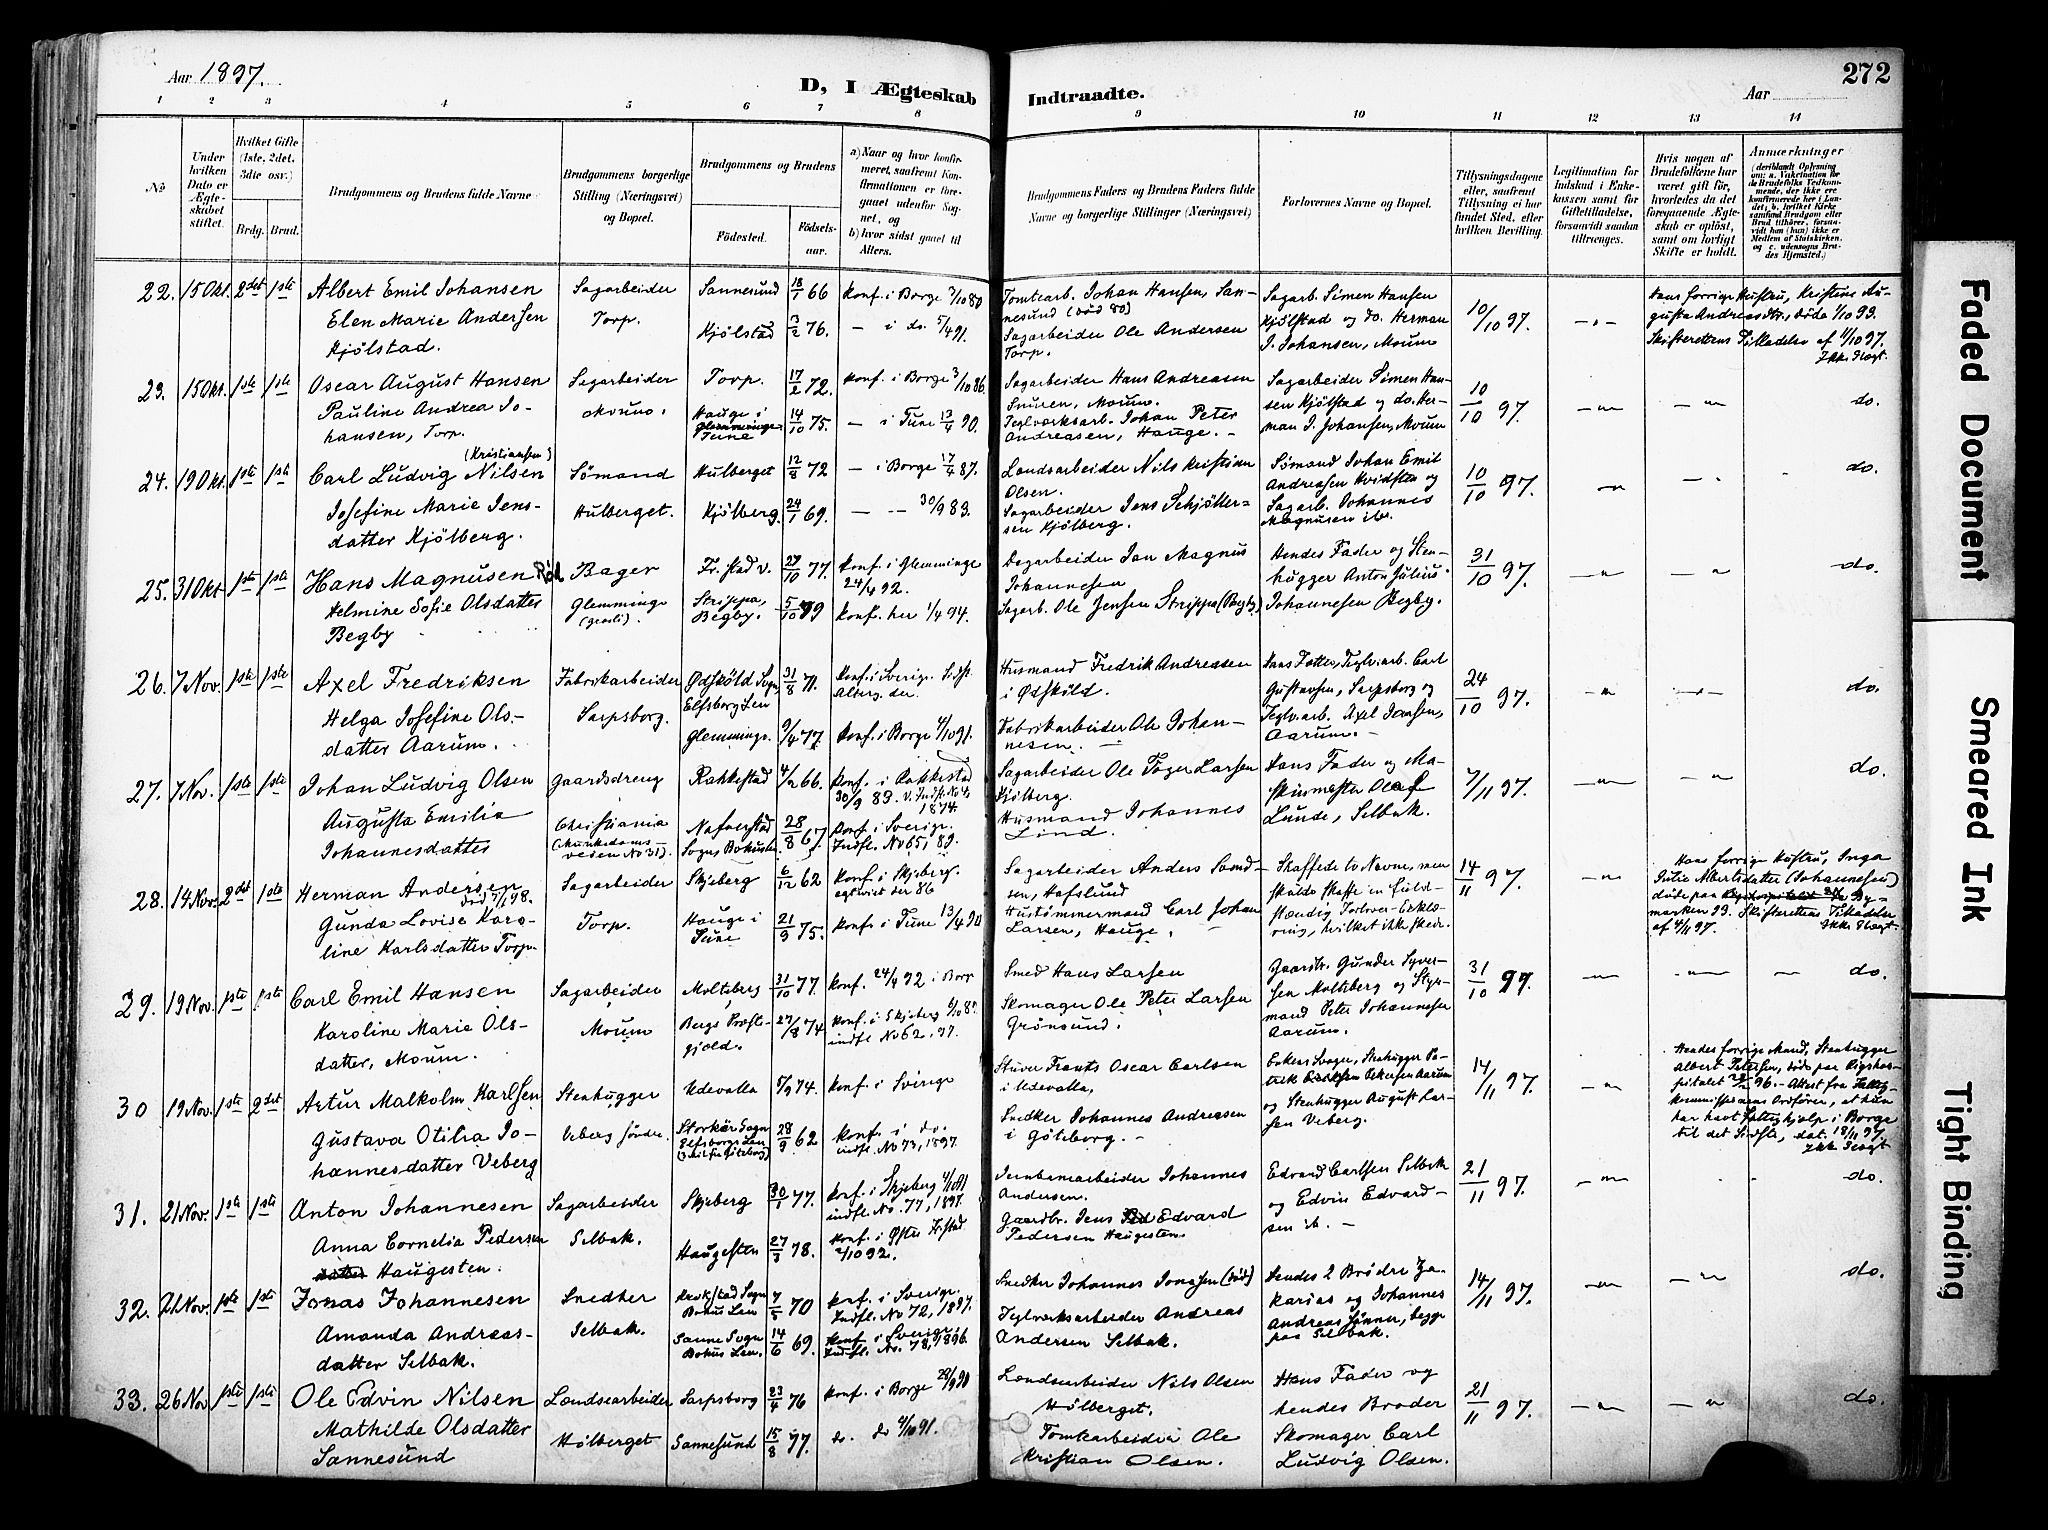 Aar 1897.
D, I Ægteskab
Indtraadte.
Aar
272
1 2 3 4 5 6 7 8 9 10 11 12 13 14
No
Under hvilken Dato er Ægteskabet stiftet.
Hvilket Gifte (1ste, 2det, 3die osv.)
Brdg. Brud.
Brudgommens og Brudens fulde Navne
Brudgommens borgerlige Stilling (Næringsvei) og Bopæl.
Brudgommens og Brudens
Fødested.
Fødselsaar.
a) Naar og hvor konfirmeret, saafremt Konfirmationen er foregaaet udenfor Sognet, og
b) hvor sidst gaaet til Alters.
Brudgommens Faders og Brudens Faders fulde Navne og borgerlige Stillinger (Næringsvei)
Forlovernes Navne og Bopæl.
Tillysningsdagene eller, saafremt Tillysning ei har fundet Sted, efter hvilken Bevilling.
Legitimation for Indskud i Enkekassen samt for Giftetilladelse, forsaavidt saadan tiltrænges.
Hvis nogen af Brudefolkene har været gift før, hvorledes da det foregaaende Ægteskab er opløst, samt om lovligt Skifte er holdt.
Anmærkninger
(deriblandt Oplysning om: a. Vakcination for de Brudefolks Vedkommende, der ikke ere konfirmerede her i Landet; b. hvilket Kirkesamfund Brudgom eller Brud tilhører, forsaavidt han (hun) ikke er Medlem af Statskirken, og c. udensogns Brudes Hjemsted.)
22. 15 Okt. 2det 1ste Albert Emil Johansen Sagarbeider Sannesund 18/1 66 Konf. i Borge 3/10 80
Elen Marie Andersen Torp. Kjölstad 3/2 76. — i do. 5/4 91.
Kjölstad.
Tomtearb. Johan Hansen, Sannesund (död 80)
Sagarbeider Ole Andersen Torp.
Sagarb. Simen Hansen Kjölstad og do. Herman J. Johansen, Moum
10/10 97.
Hans forrige Hustru, Kristine Augusta Andreasdtr., döde 1/10 93. Skifterettens Tilladelse af 11/10 97. Ikke Slægt.
23. 15 Okt. 1ste 1ste Oscar August Hansen Sagarbeider Torp. 17/2 72. Konf. i Borge 3/10 86.
Pauline Andrea Johansen, Torp. Moum. Hauge i Tune 14/10 75. — i Tune 13/4 90.
Sagarbeider Hans Andreasen Snuren, Moum.
Teglværksarb. Johan Peter Andreasen, Hauge. -
Sagarbeider Simen Hansen Kjölstad og do. Herman J. Johansen, Moum
10/10 97. do.
(Kristiansen)
24. 19 Okt. 1ste 1ste Carl Ludvig Nilsen Sömand Hulberget 12/8 72 — i Borge 17/4 87.
Josefine Marie Jensdatter Kjölberg. Hulberget. Kjölberg. 24/1 69. — -- 30/9 83.
Landsarbeider Nils Kristian Olsen.
Sagarbeider Jens Schjöttersen Kjölberg.
Sömand Johan Emil Andreasen Kvidsten og Sagarb. Johannes Magnusen ib.
10/10 97. do.
25. 31 Okt 1ste 1ste Hans Magnusen Röd Bager Fr.stad v. 27/10 77. Konf. i Glemminge 24/4 92.
Helmine Sofie Olsdatter Begby Glemminge Strippa, Begby. 5/10 79 Konf. her 1/4 94.
Dagarbeider Jan Magnus Johannesen
Sagarb. Ole Jensen Strippa (Begby)
Hendes Fader og Stenhugger Anton Julius Johannesen Begby.
31/10 97. do.
26. 7 Nov. 1ste 1ste Axel Fredriksen Fabrikarbeider Ødsköld Sogn Elfsborg Len 31/8 71. Konf. i Sverige.
Helga Josefine Olsdatter Aarum. Sarpsborg. Glemminge. 9/4 77. Konf. i Borge 4/10 91.
Husmand Fredrik Andreasen i Ødsköld.
Fabrikarbeider Ole Johannesen.
Hans Fætter, Teglv.arb. Carl Gustavsen, Sarpsborg og Teglv.arb. Axel Jansen, Aarum.
24/10 97. do.
27. 7 Nov. 1ste 1ste Johan Ludvig Olsen Gaardsdreng Rakkestad 4/2 66 Konf. i Rakkestad 30/9 83.
Augusta Emilia Johannesdatter Christiania (Munkedamsveien No 31). Nafverstad Sogn, Bohuslen 28/8 67. Konf. i Sverige. Indfl. No 65, 89.
Sagarbeider Ole Toger Larsen Kjölberg.
Husmand Johannes Lind.
Hans Fader og Maskinmester Olaf Lunde, Selbak.
7/11 97. do.
28. 14 Nov. 2det 1ste Herman Andersen Sagarbeider Skjeberg 6/12 62 Konf. i Skjeberg.
död 7/1 98.
Gunda Lovise Karoline Karlsdatter Torp. Torp. Hauge i Tune 21/9 75. Konf. i Tune 13/4 90
Sagarbeider Anders Samdsen, Hafslund
Hustömmermand Carl Johan Larsen, Hauge.
Skaffede to Navne, men skulde skaffe en fuldstændig Forlover-Erklæring, hvilket ikke skede.
14/11 97.
Hans forrige Hustru, Inga Julie Albertsdatter (Johannesen) döde paa Bymarken 93. Skifterettens Tilladelse af 4/11 97. Ikke Slægt.
29. 19 Nov. 1ste 1ste Carl Emil Hansen Sagarbeider Molteberg 31/10 77. Konf. 24/4 92 i Borge
Karoline Marie Olsdatter, Moum. Moum Bergs Præstgjeld. 27/8 74 Konf. i Skjeberg indfl No 62. 97.
Smed Hans Larsen
Skomager Ole Peter Larsen Grönsund.
Gaardbr. Gunder Syversen Molteberg og Styrmand Peter Johannesen Aarum.
31/10 97. do.
30 19 Nov. 1ste 2det Artur Malkolm Karlsen Stenhugger Udevalla 5/9 74. Konf. i Sverige
Gustava Otilia Johannesdatter Veberg Veberg söndre. Storkär Sogn Elfsborgs Len 28/9 62 Konf. i do. indfl. No 73, 1897.
Stuver Frants Oscar Carlsen i Udevalla,
Snedker Johannes Andreasen i Göteborg. -
Enkens Svoger, Stenhugger Patrik Petersen Aarum og Stenhugger August Larsen Veberg.
14/11 97.
Hendes forrige Mand, Stenhugger Albert Petersen, döde paa Rigshospitalet 96. - Attest fra Fattigkommissionens Ordförer, at hun har havt Fattighjælp i Borge til det sidste, dat. 18/11 97. Ikke Slægt.
31. 21 Nov. 1ste 1ste Anton Johannesen Sagarbeider Skjeberg 77. Konf. i Skjeberg indfl. No. 77, 1897.
Anna Cornelia Pedersen Haugesten. Selbak. Haugesten 27/3 78. Konf. i Østre Fr.stad 2/10 92.
Jernbanearbeider Johannes Andersen.
Gaardbr. Jens Edvard Pedersen Haugesten.
Edvard Carlsen Selbak og Edvin Edvardsen ib. -
21/11 97. do.
32. 21 Nov. 1ste 1ste Jonas Johannesen Snedker Krokstad Sogn Bohus Len 7/5 70 Konf. i Sverige. Indfl. No 72, 1897.
Amanda Andreasdatter Selbak. Selbak. Sanne Sogn Bohus Len. 14/6 69. Konf. i Sverige. Indfl. No. 78, 1896.
Snedker Johannes Jonasen (död)
Teglværksarbeider Andreas Andersen Selbak.
Hendes 2 Brödre Zakarias og Johannes Andreas Sönner, begge paa Selbak.
14/11 97. do.
33. 26 Nov 1ste 1ste Ole Edvin Nilsen Landsearbeider Sarpsborg 23/4 76 Konf. i Borge 28/9 90
Mathilde Olsdatter Sannesund Hölberget Sannesund 15/8 77. do. do 4/10 91.
Landsearbeider Nils Olsen Hölberget.
Tomtearbeider Ole Kristian Olsen.
Hans Fader og hendes Broder Skomager Carl Ludvig Olsen.
21/11 97. do.
Faded Document
Smeared Ink
Tight Binding